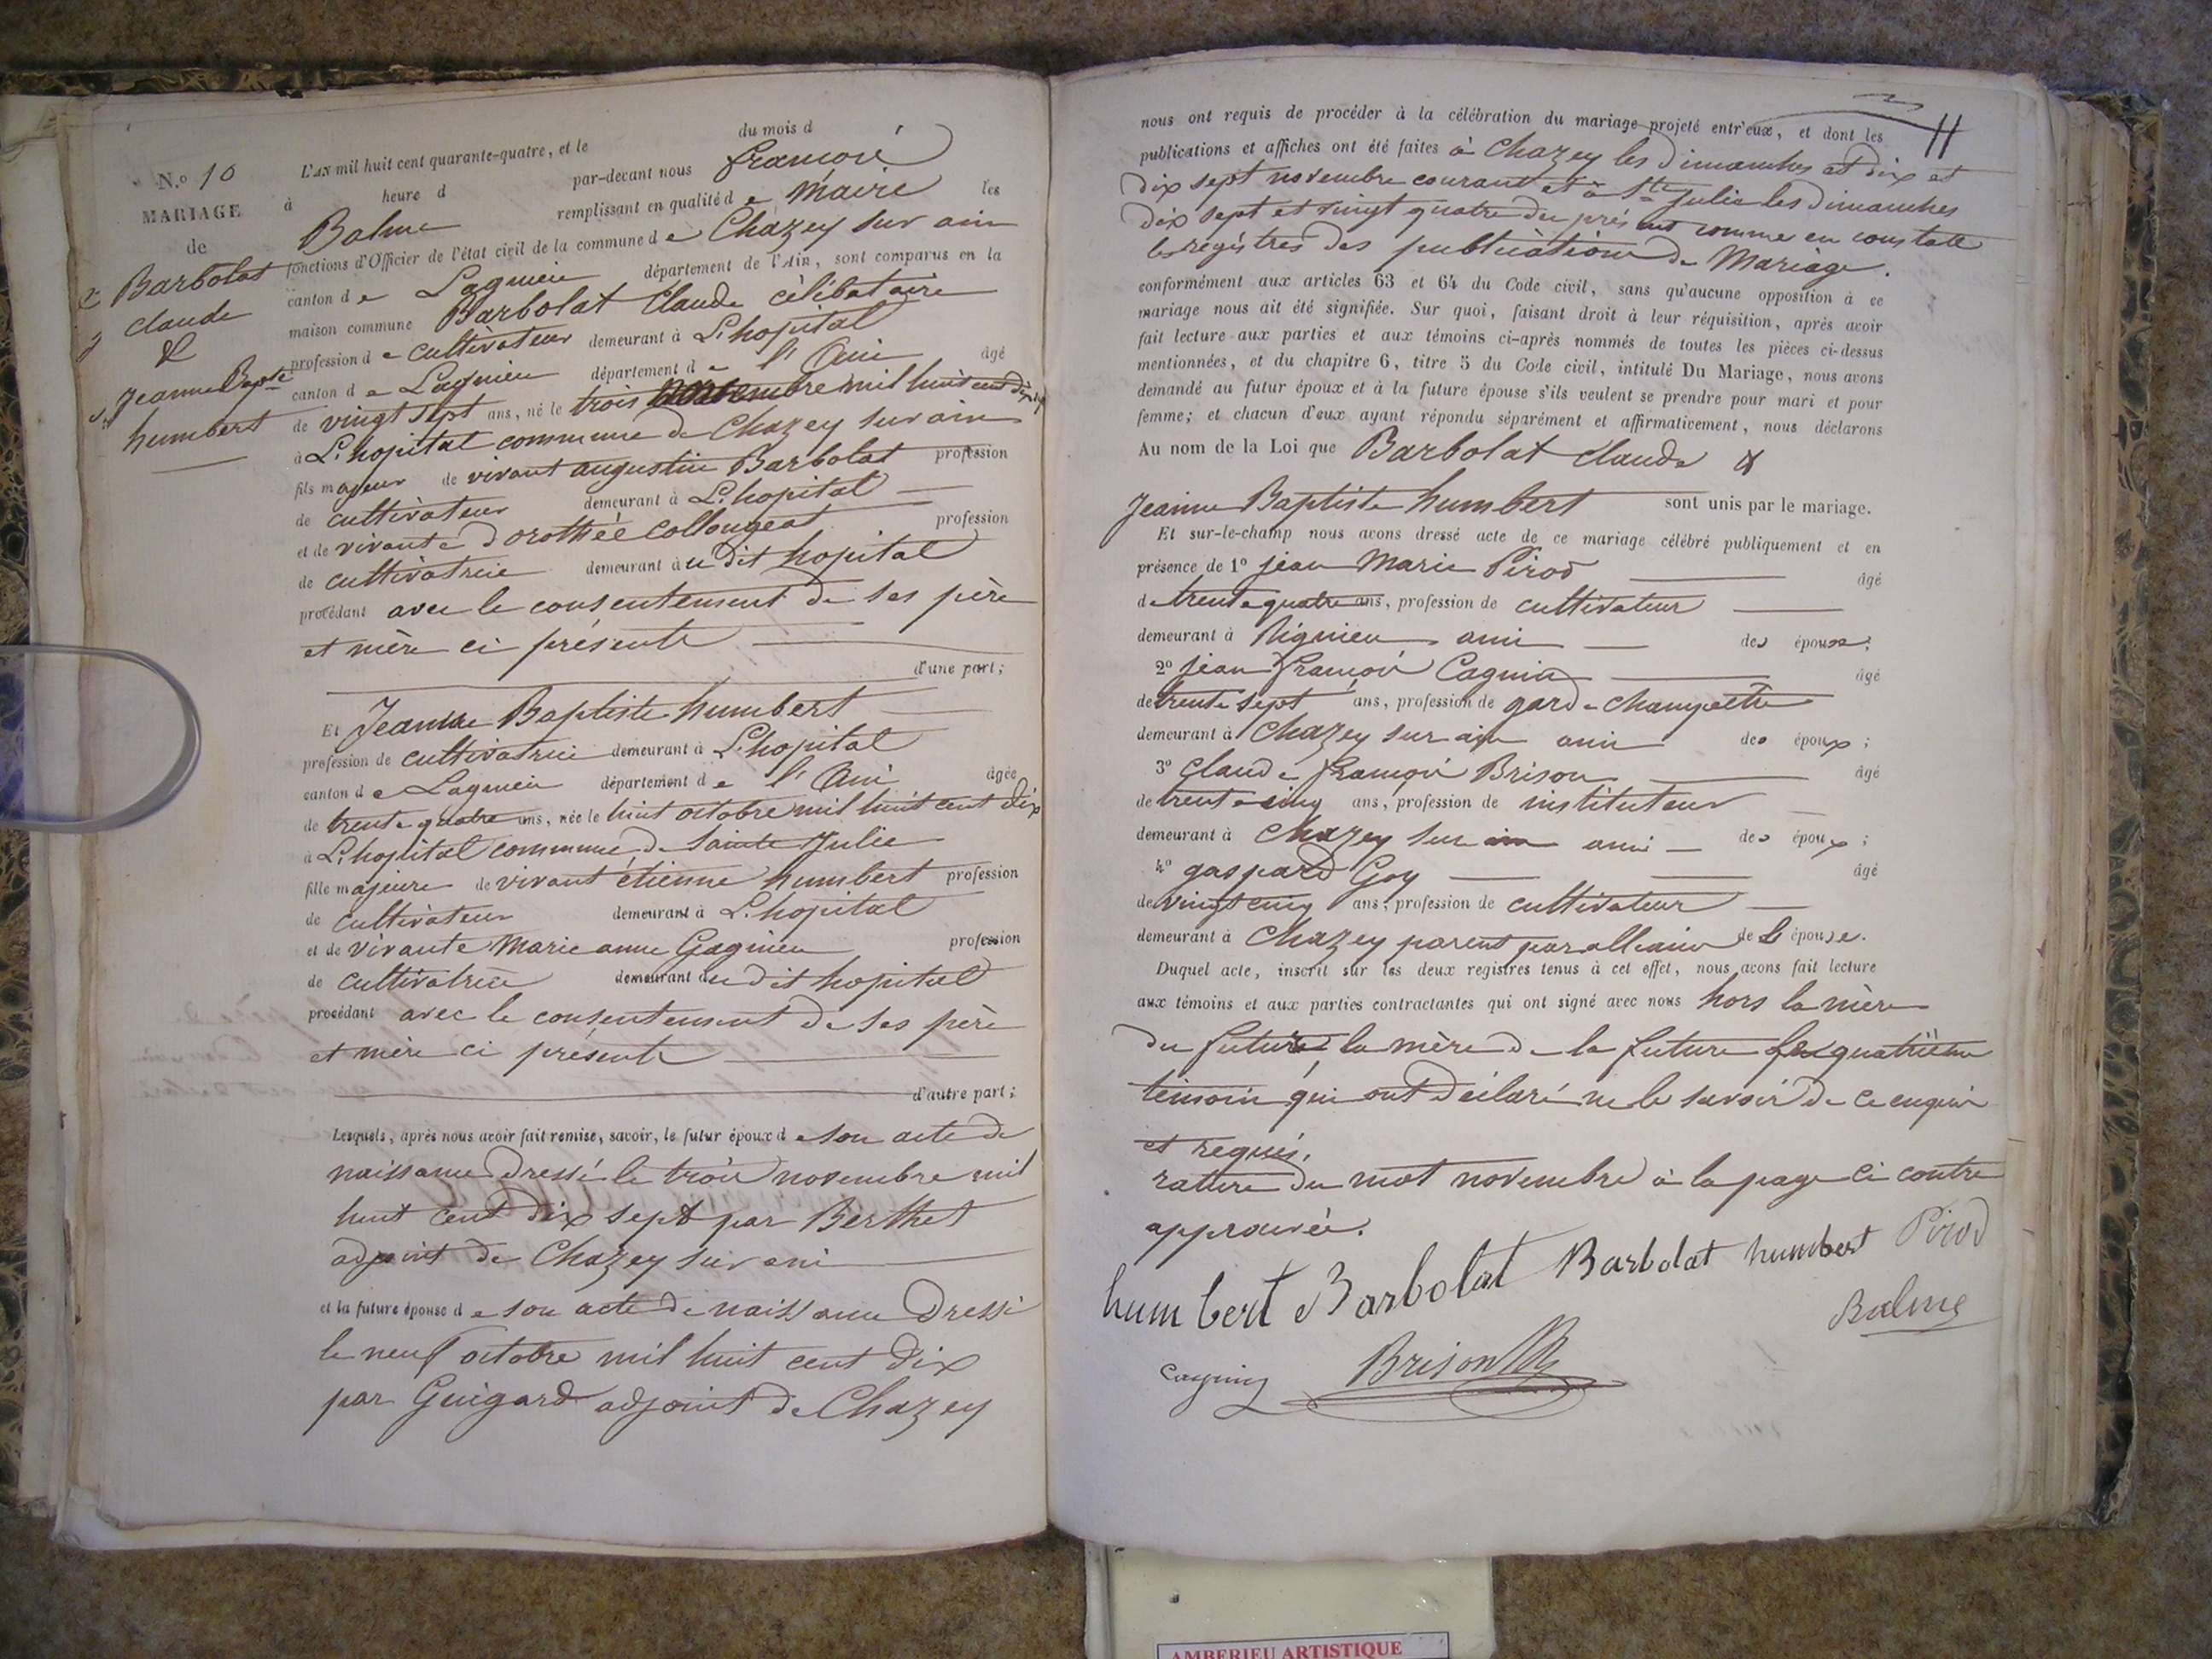 N.o 10
MARIAGE
de
Barbolat
claude
&
Jeanne Bapte
humbert
L'AN mil huit cent quarante-quatre, et le du mois d
à heure d par-devant nous françois
Balme remplissant en qualité d e Maire les
fonctions d'Officier de l'état civil de la commune d e Chazey sur ain
canton d e Lagnieu département de l'Ain, sont comparus en la
maison commune Barbolat Claude célibataire
profession d e cultivateur demeurant à L'hopital
canton d e Lagnieu département d e l'Ain âgé
de vingt sept ans, né le trois novembre mil huit cent dix sept
à L'hopital commune de Chazey sur ain
fils majeur de vivant augustin Barbolat profession
de cultivateur demeurant à L'hopital
et de vivante dorothée Collongeat profession
de cultivatrice demeurant au dit hopital
procédant avec le consentement de ses père
et mère ci présents
d'une part;
Et Jeanne Baptiste humbert
profession de cultivatrice demeurant à L'hopital
canton d e Lagnieu département d e l'Ain âgée
de trente quatre ans, née le huit octobre mil huit cent dix
à L'hopital commune de Sainte Julie
fille majeure de vivant étienne humbert profession
de cultivateur demeurant à L'hopital
et de vivante Marie anne Gagnieu profession
de cultivatrice demeurant au dit hopital
procédant avec le consentement de ses père
et mère ci présents
d'autre part;
Lesquels, après nous avoir fait remise, savoir, le futur époux d e son acte de
naissance dressé le trois novembre mil
huit cent dix sept par Berthet
adjoint de Chazey sur ain
et la future épouse d e son acte de naissance dressé
le neuf octobre mil huit cent dix
par Guigard adjoint de Chazey
11
nous ont requis de procéder à la célébration du mariage projeté entr'eux, et dont les
publications et affiches ont été faites à Chazey les dimanches dix et
dix sept novembre courant et à Ste Julie les dimanches
dix sept et vingt quatre du présent comme en constate
les registres des publications de Mariage.
conformément aux articles 63 et 64 du Code civil, sans qu'aucune opposition à ce
mariage nous ait été signifiée. Sur quoi, faisant droit à leur réquisition, après avoir
fait lecture aux parties et aux témoins ci-après nommés de toutes les pièces ci-dessus
mentionnées, et du chapitre 6, titre 5 du Code civil, intitulé Du Mariage, nous avons
demandé au futur époux et à la future épouse s'ils veulent se prendre pour mari et pour
femme; et chacun d'eux ayant répondu séparément et affirmativement, nous déclarons
Au nom de la Loi que Barbolat claude &
Jeanne Baptiste humbert sont unis par le mariage.
Et sur-le-champ nous avons dressé acte de ce mariage célébré publiquement et en
présence de 1o jean Marie Pirod âgé
de trente quatre ans, profession de cultivateur
demeurant à Rignieu ami des époux;
2o jean françois Cagnin âgé
de trente sept ans, profession de garde champêtre
demeurant à Chazey sur ain ami des époux;
3o Claude françois Brison âgé
de trente cinq ans, profession de instituteur
demeurant à Chazey sur ain ami des époux;
4o gaspard Goy âgé
de vingt cinq ans, profession de cultivateur
demeurant à Chazey parent par alliance de l'épouse.
Duquel acte, inscrit sur les deux registres tenus à cet effet, nous avons fait lecture
aux témoins et aux parties contractantes qui ont signé avec nous hors la mère
du futur la mère de la future le quatrième
témoin qui ont déclaré ne le savoir de ce enquis
et requis.
rature du mot novembre à la page ci contre
approuvée.
humbert Barbolat Barbolat humbert Pirod
Balme
cagnin Brison
AMBERIEU ARTISTIQUE